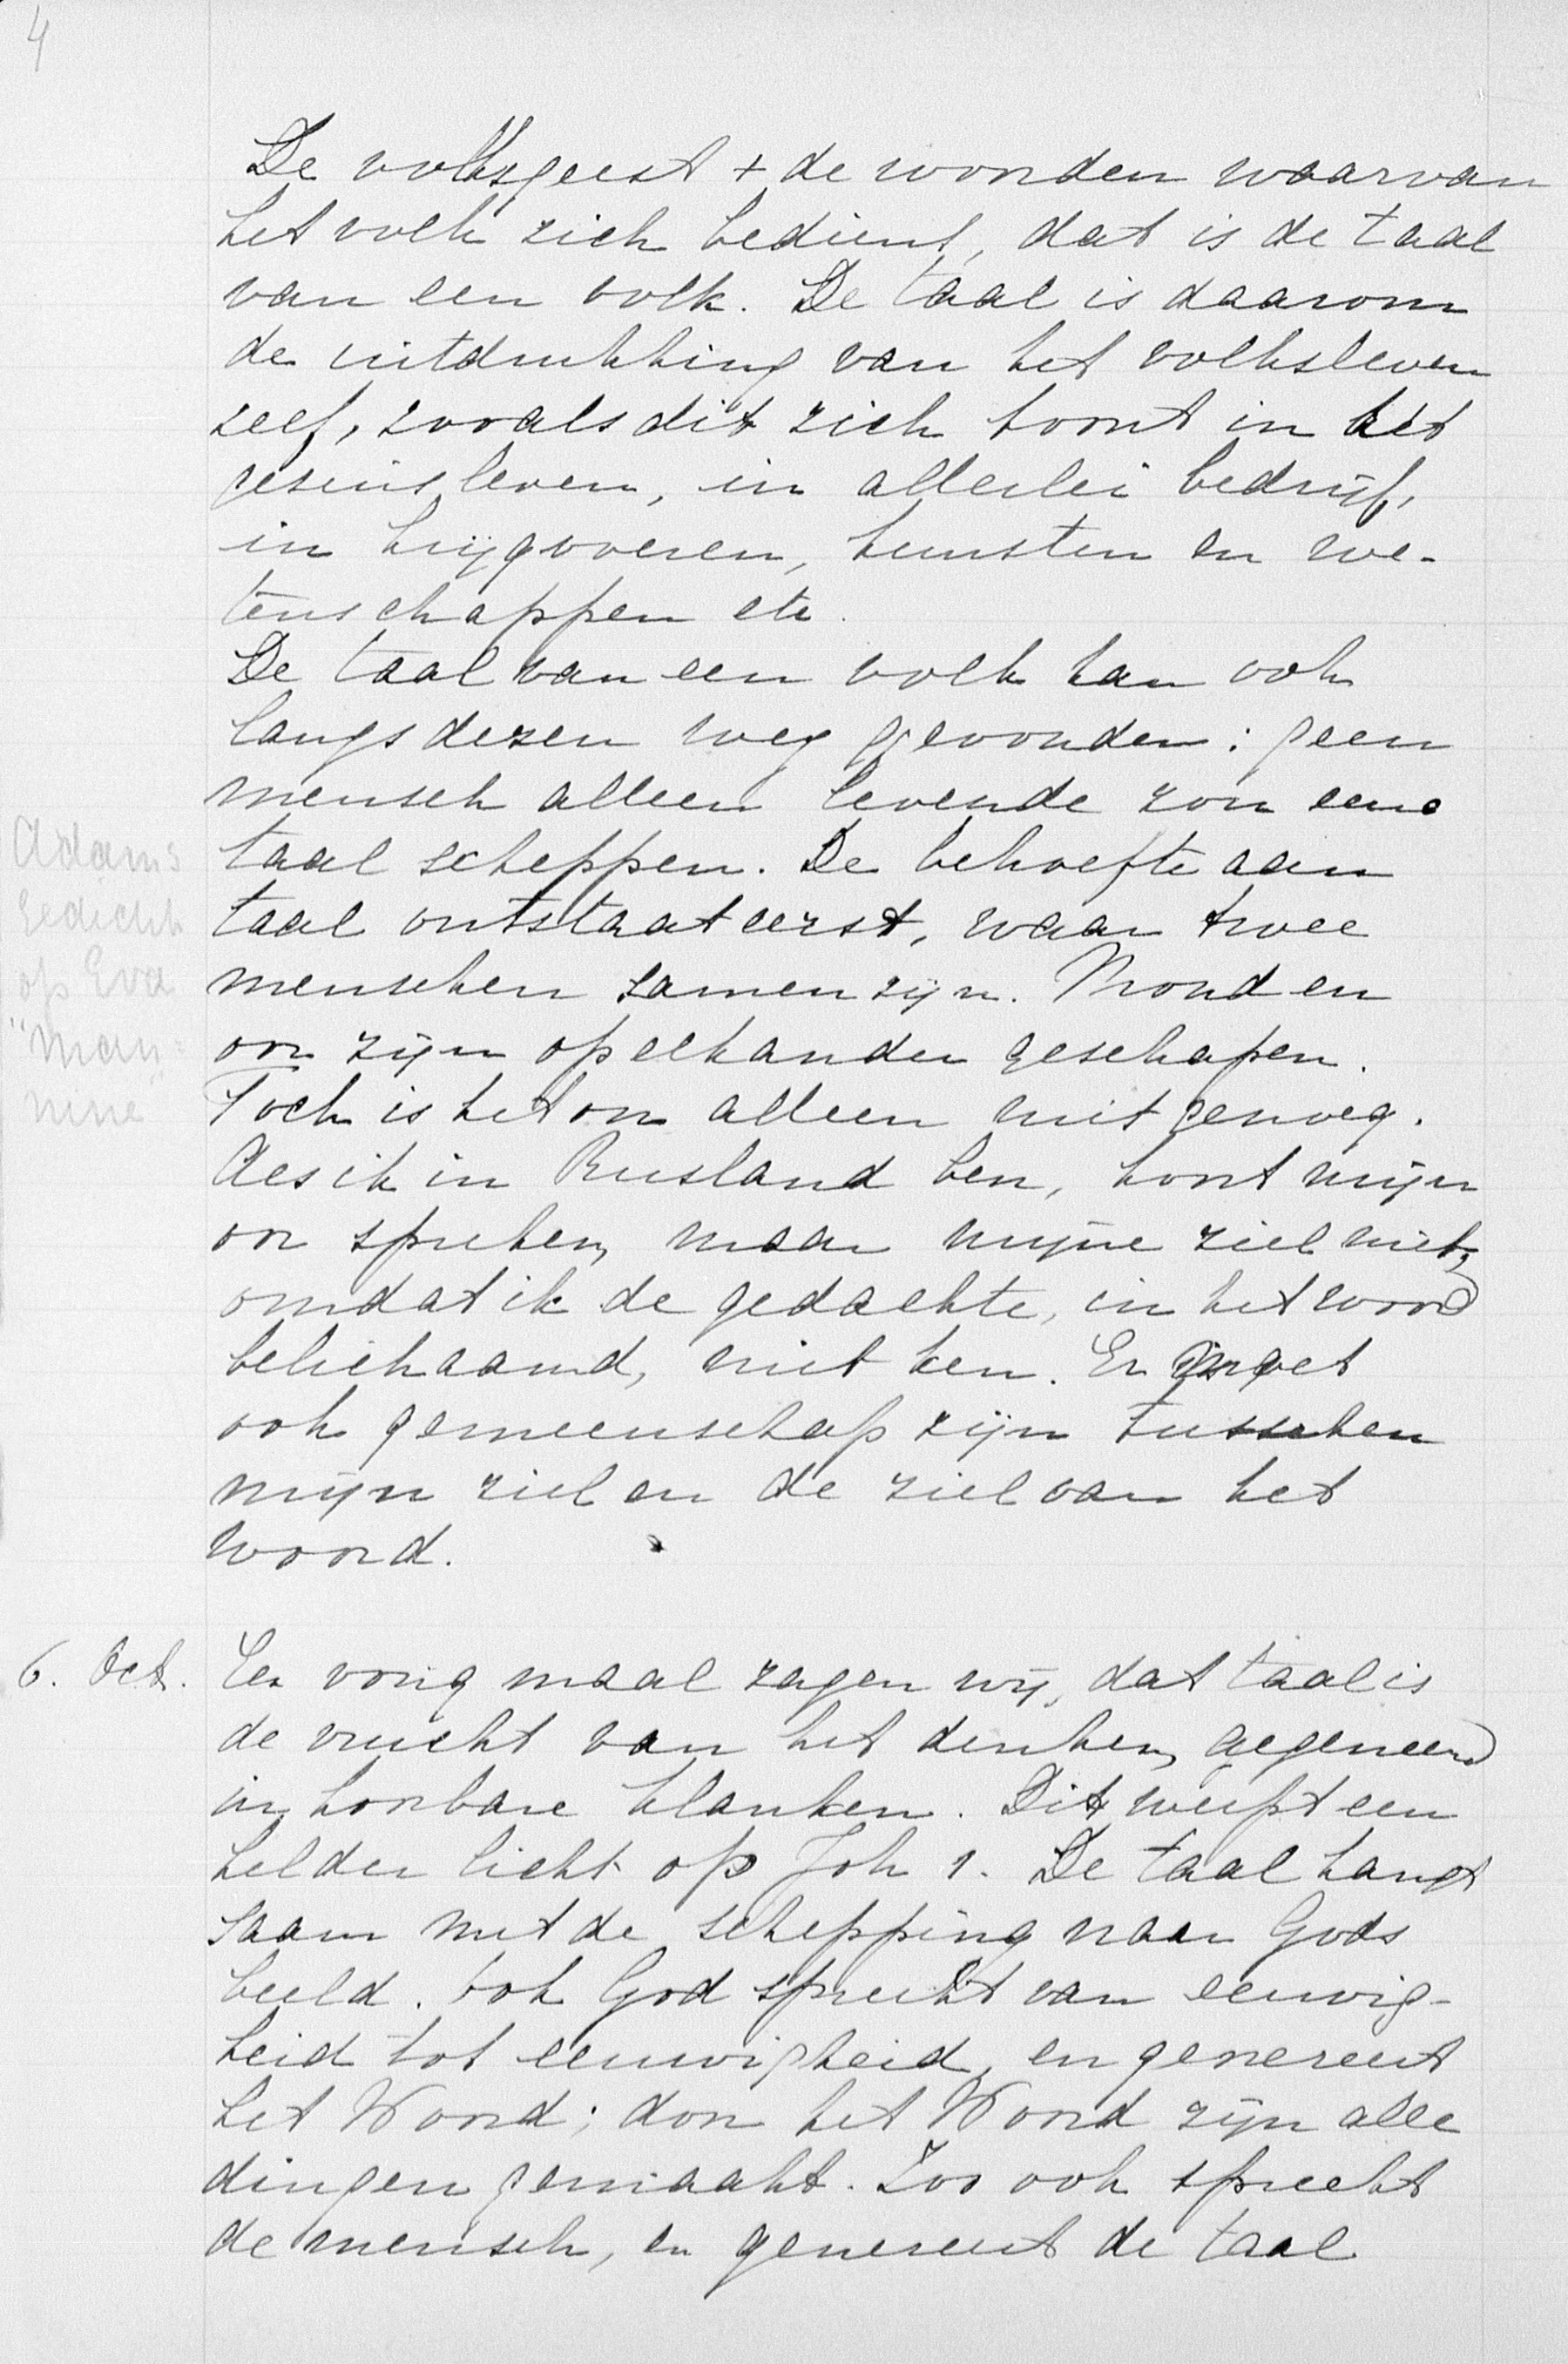 4
De volksgeest + de woorden waarvan
het volk zich bedient, dat is de taal
van een volk. De taal is daarom
de uitdrukking van het volksleven
zelf, zooals dit zich toont in het
gezinsleven, in allerlei bedrijf,
in krijgvoeren, kunsten en we-
tenschappen etc.
De taal van een volk kan ook
langs dezen weg gevonden: geen
mensch alleen levende zou eene
taal scheppen. De behoefte aan
taal ontstaat eerst, waar twee
menschen samen zijn. Mond en
oor zijn op elkander geschapen.
Toch is het oor alleen niet genoeg.
Als ik in Rusland ben, hoort mijn
oor spreken, maar mijne ziel niet,
omdat ik de gedachte, in het woord
belichaamd, niet ken. Er moet
ook gemeenschap zijn tusschen
mijn ziel en de ziel van het
woord.
Adams
gedicht
op Eva
"Man-
nine"
6. Oct. Een vorig maal zagen wij, dat taal is
de vrucht van het denken, gegenereerd
in hoorbare klanken. Dit werpt een
helder licht op Joh 1. De taal hangt
saam met de schepping naar Gods
beeld. Ook God spreekt van eeuwig-
heid tot eeuwigheid, en genereert
het Woord; door het Woord zijn alle
dingen gemaakt. Zoo ook spreekt
de mensch, en genereert de taal